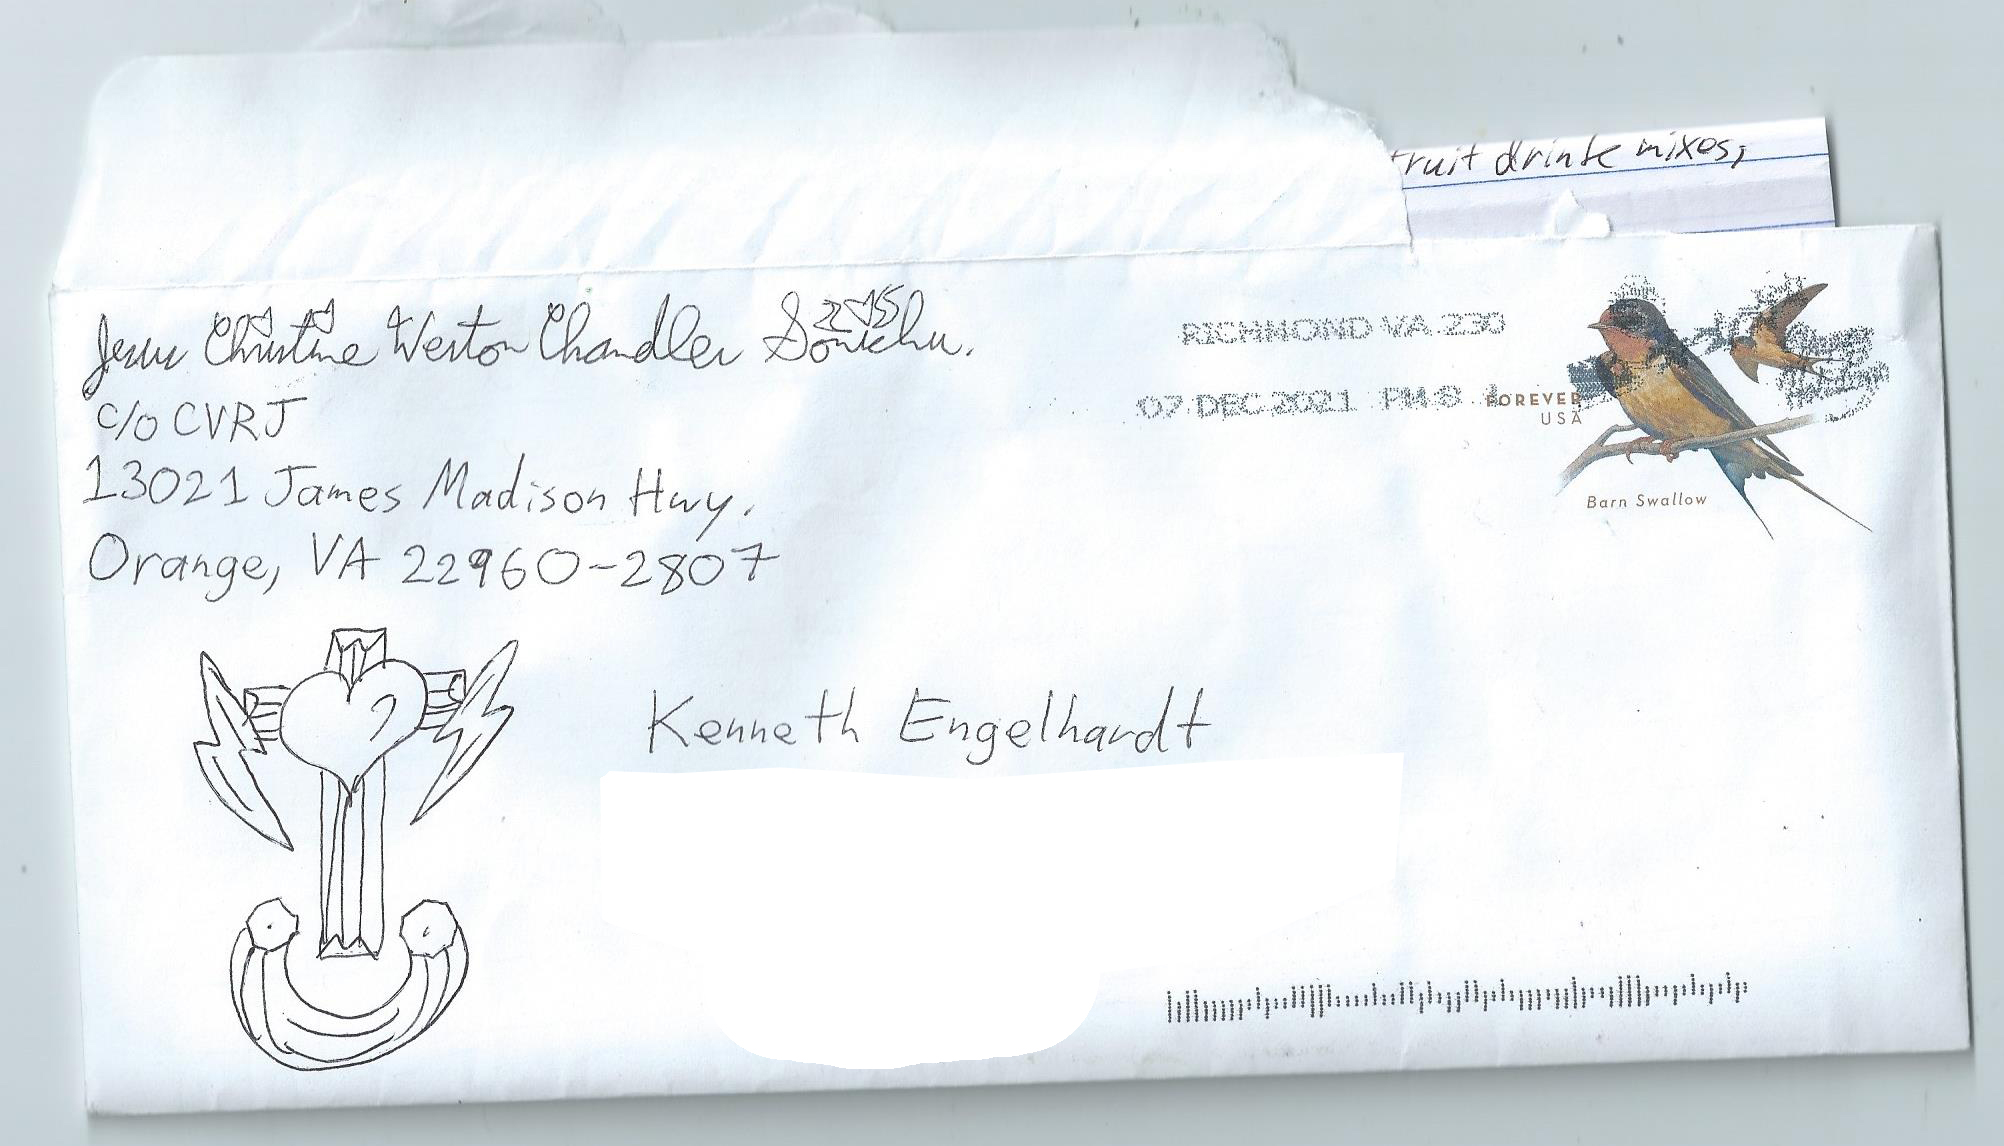 fruit drink mixes,
Jesus Christine Weston Chandler Sonichu.
c/o CVRJ
13021 James Madison Hwy.
Orange, VA 22960-2807
RICHMOND VA 230
07 DEC 2021 PM 8
FOREVER
USA
Barn Swallow
Kenneth Engelhardt